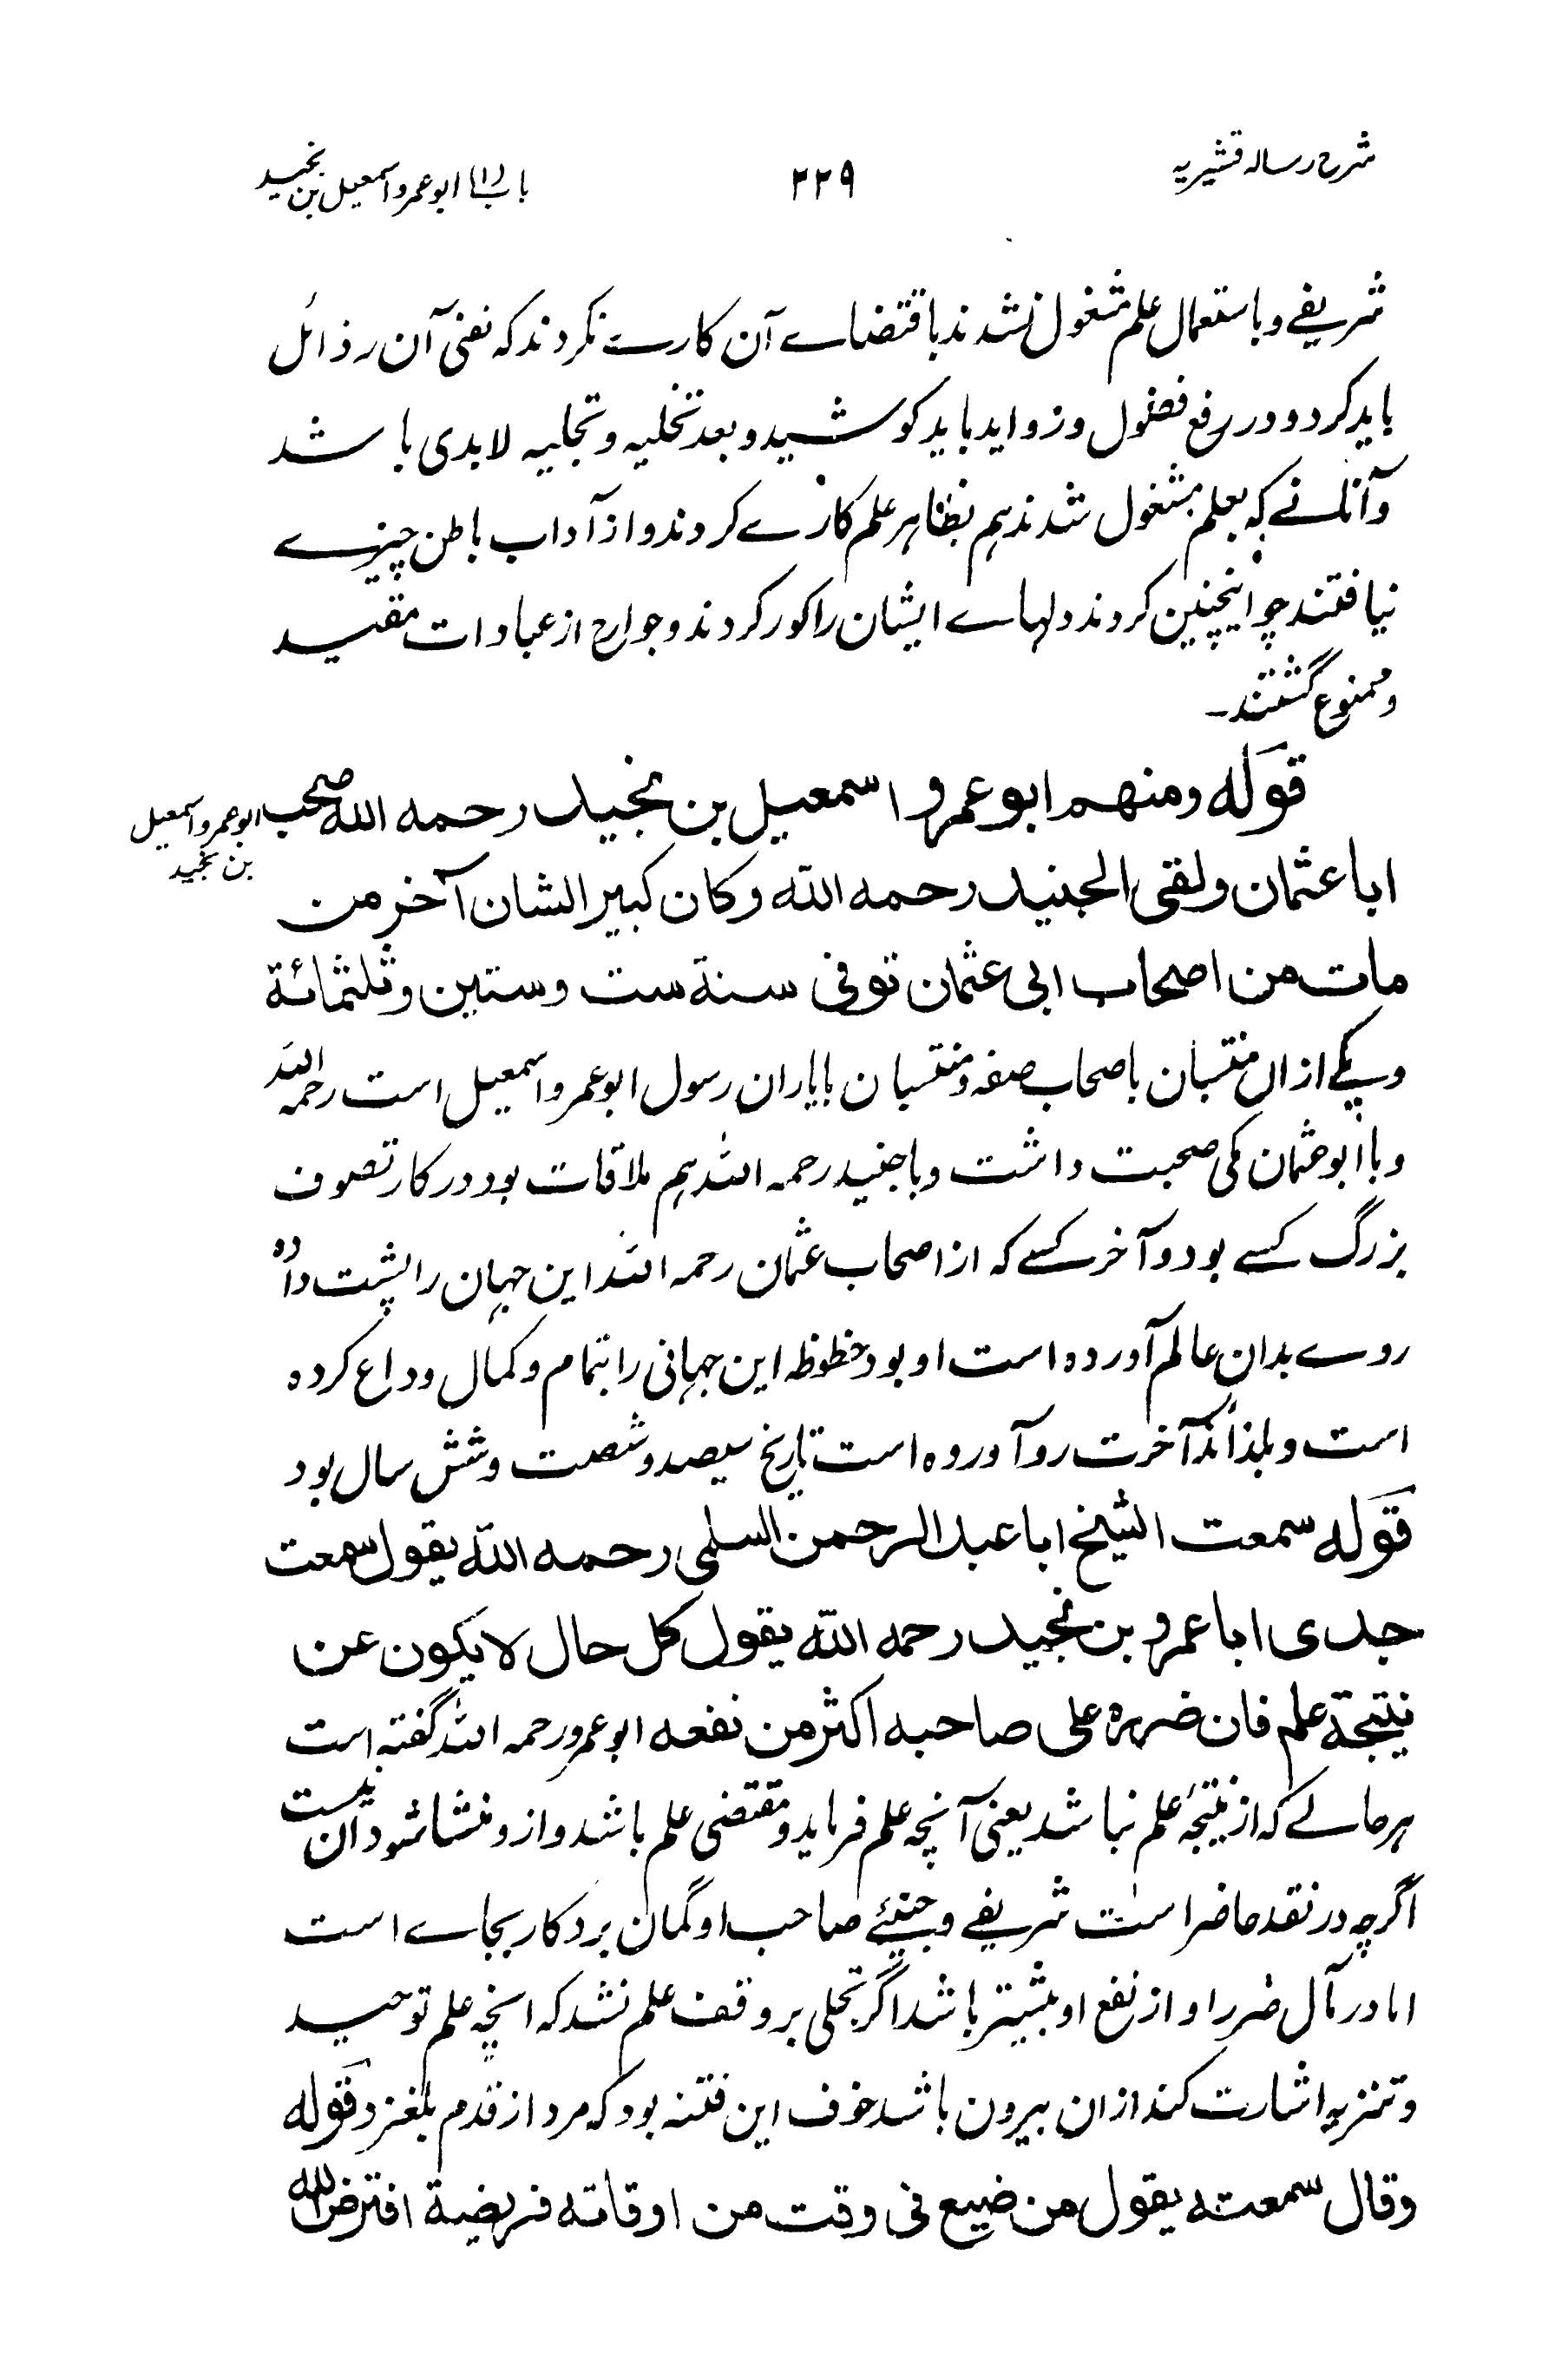 شرح رساله قشیریه
۲۲۹
باب (۱) ابوعمرو اسمعیل بن نجید
شریفے و باستعمال علم مشغول نشدند باقتضاے آن کارے نکردند که نفی آن رذائل
باید کرد و در رفع فضول و زواید باید کوشید و بعد تخلیه و تجلیه لابدی باشد
و آنانے که بعلم مشغول شدند هم بظاهر علم کارے کردند و از آداب باطن چیزے
نیافتند چو اینچنین کردند دلهاے ایشان را کور کردند و جوارح از عبادات مقید
و ممنوع گشتند ۔
قوله ومنهم ابوعمرو اسمعیل بن نجید رحمه الله صحب
ابوعمرو اسمعیل
بن نجید
اباعثمان ولقی الجنید رحمه الله وکان کبیر الشان آخر من
مات من اصحاب ابی عثمان توفی سنة ست وستین وثلثمائة
ویکے ازان منتسبان باصحاب صفه و منتسبان بایاران رسول ابوعمرو اسمعیل است رحمه الله
و با ابوعثمان مکی صحبت داشت و با جنید رحمه الله هم ملاقات بود در کار تصوف
بزرگ کسے بود و آخر کسے که از اصحاب عثمان رحمه الله این جهان را پشت داده
روے بدان عالم آورده است او بود حظوظ این جهانی را بتمام و کمال وداع کرده
است و بلذائذ آخرت رو آورده است تاریخ سیصد و شصت و شش سال بود
قوله سمعت الشیخ اباعبد الرحمن السلمی رحمه الله یقول سمعت
جدی اباعمرو بن نجید رحمه الله یقول کل حال لا یکون عن
نتیجة علم فان ضرره علی صاحبه اکثر من نفعه ابوعمرو رحمه الله گفته است
هر حالے که از نتیجۂ علم نباشد یعنی آنچه علم فرماید و مقتضی علم باشد و ازو منشا شود آن نیست
اگرچه در نقد حاضر است شریفے و صاحب او گمان برد کار بجاے است
اما در مآل ضرر او از نفع او بیشتر باشد اگر تجلی بر وقف علم نشد که انچه علم توحید
و تنزیه اشارت کند ازان بیرون باشد خوف این فتنه بود که مرد از قدم بلغزد قوله
وقال سمعته یقول من ضیع فی وقت من اوقاته فریضة افترض الله